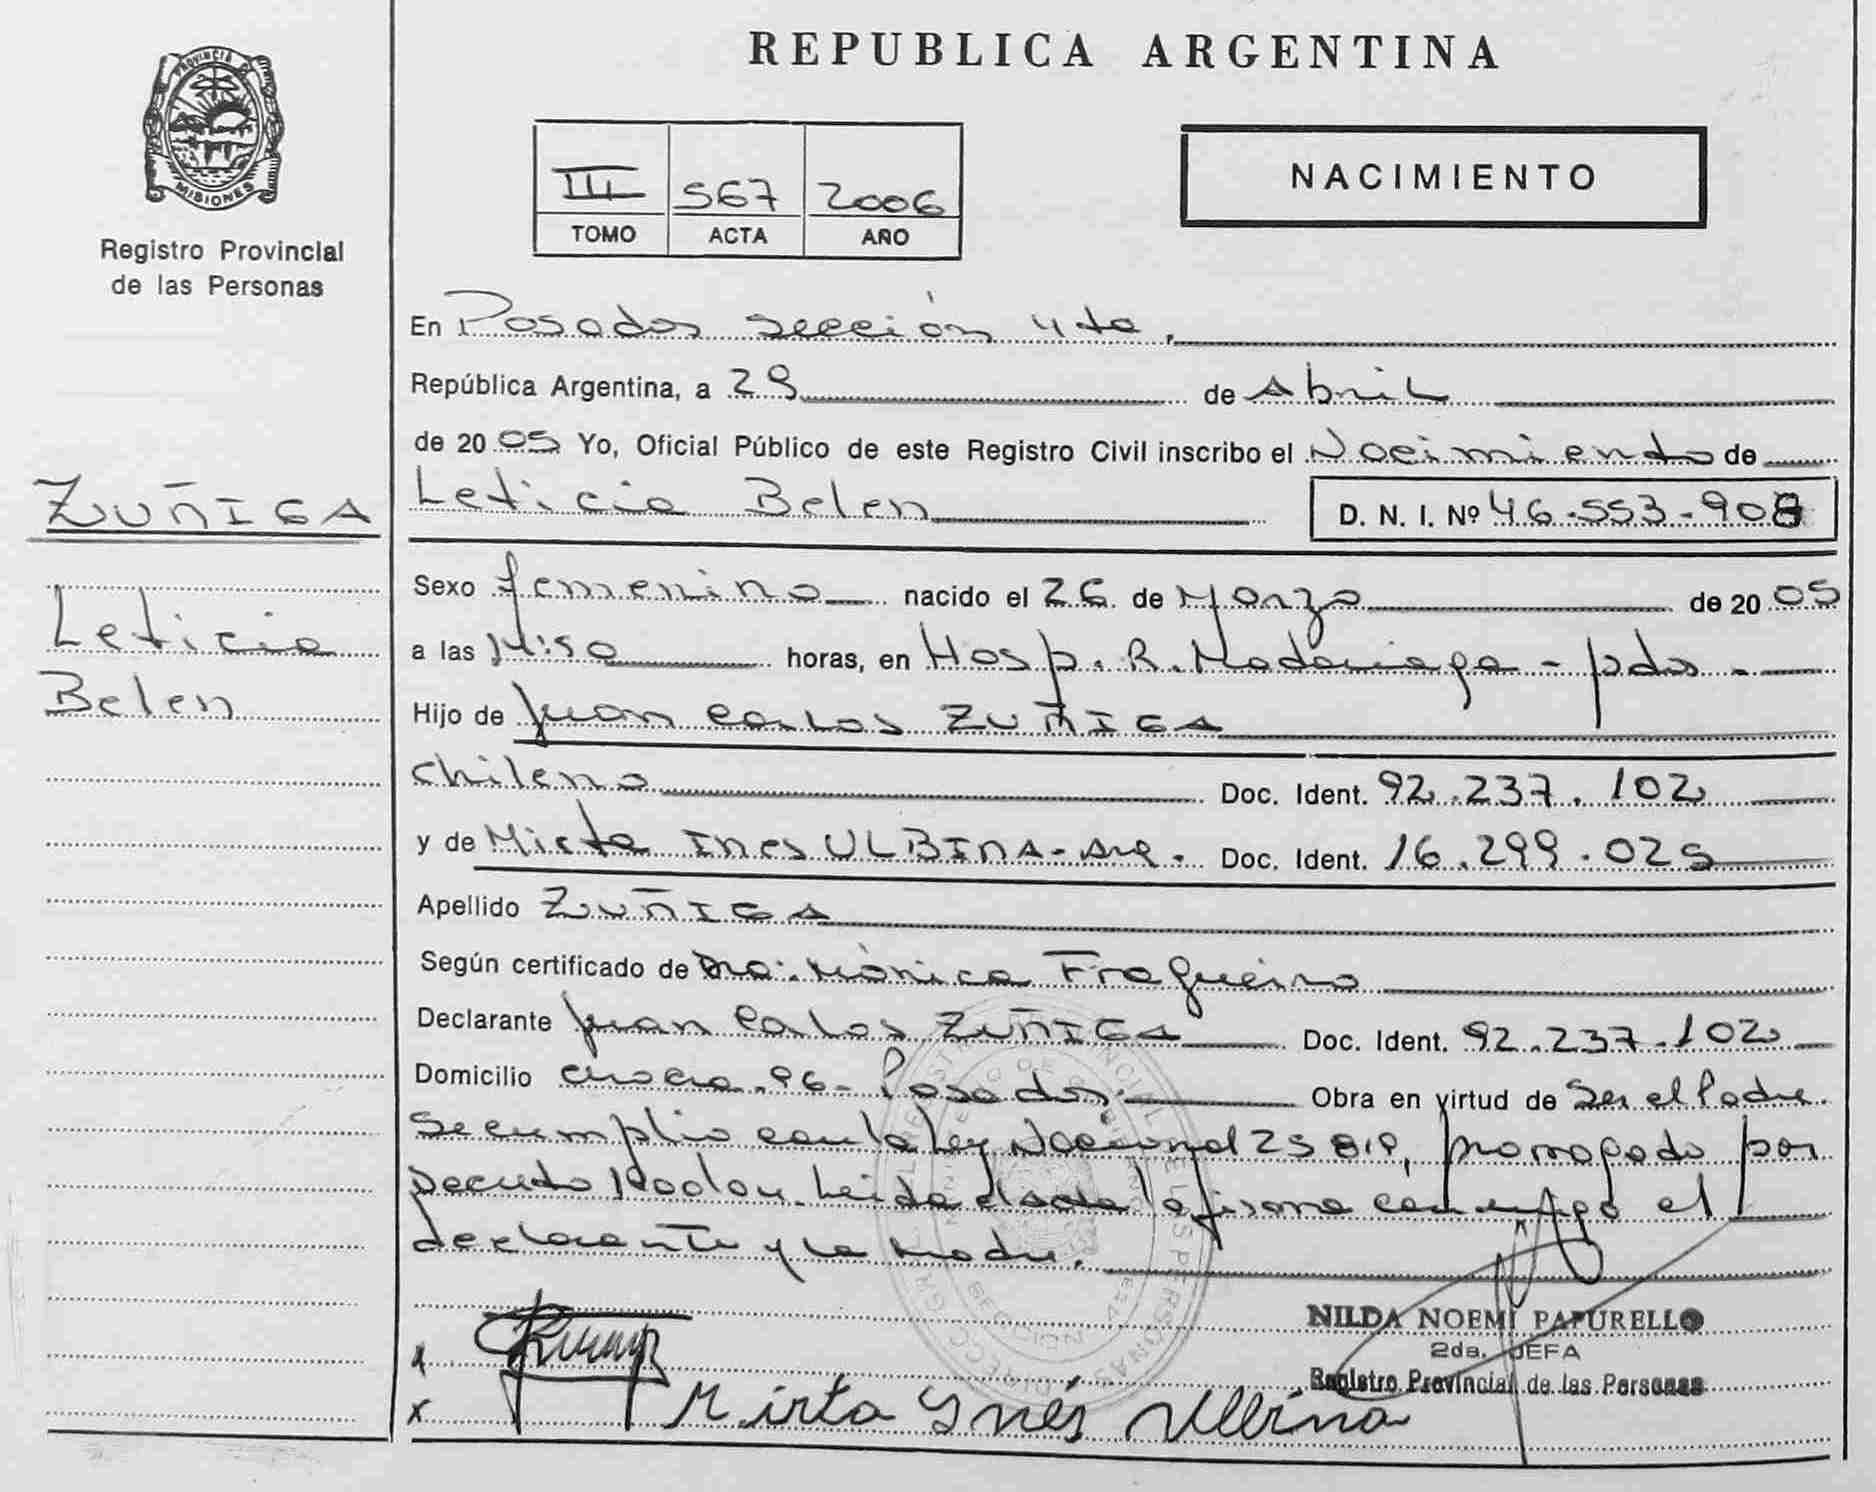 PROVINCIA DE
MISIONES
Registro Provincial
de las Personas
ZUÑIGA
Leticia
Belen
REPUBLICA ARGENTINA
III 567 2006
TOMO ACTA AÑO
NACIMIENTO
En Posadas sección 4ta.
República Argentina, a 29 de Abril
de 20 05 Yo, Oficial Público de este Registro Civil inscribo el Nacimiento de
Leticia Belen D. N. I. Nº 46.553.908
Sexo femenino nacido el 26 de Marzo de 20 05
a las horas, en Hosp. R. Madariaga - pdas -
Hijo de Juan Carlos ZUÑIGA
chileno Doc. Ident. 92.237.102
y de Mirta Ines ULBINA - Arg. Doc. Ident. 16.299.025
Apellido ZUÑIGA
Según certificado de Dra. Mónica Fragueiro
Declarante Juan Carlos ZUÑIGA Doc. Ident. 92.237.102
Domicilio 96 - Posadas Obra en virtud de Ser el Padre.
Se cumplio con la Ley Nacional 25819, prorrogado por
Decreto Leida el acta la firma conmigo el
declarante y la Madre.
NILDA NOEMI PAPURELLO
2da. JEFA
Registro Provincial de las Personas
x
x Mirta Ynés Ulbina